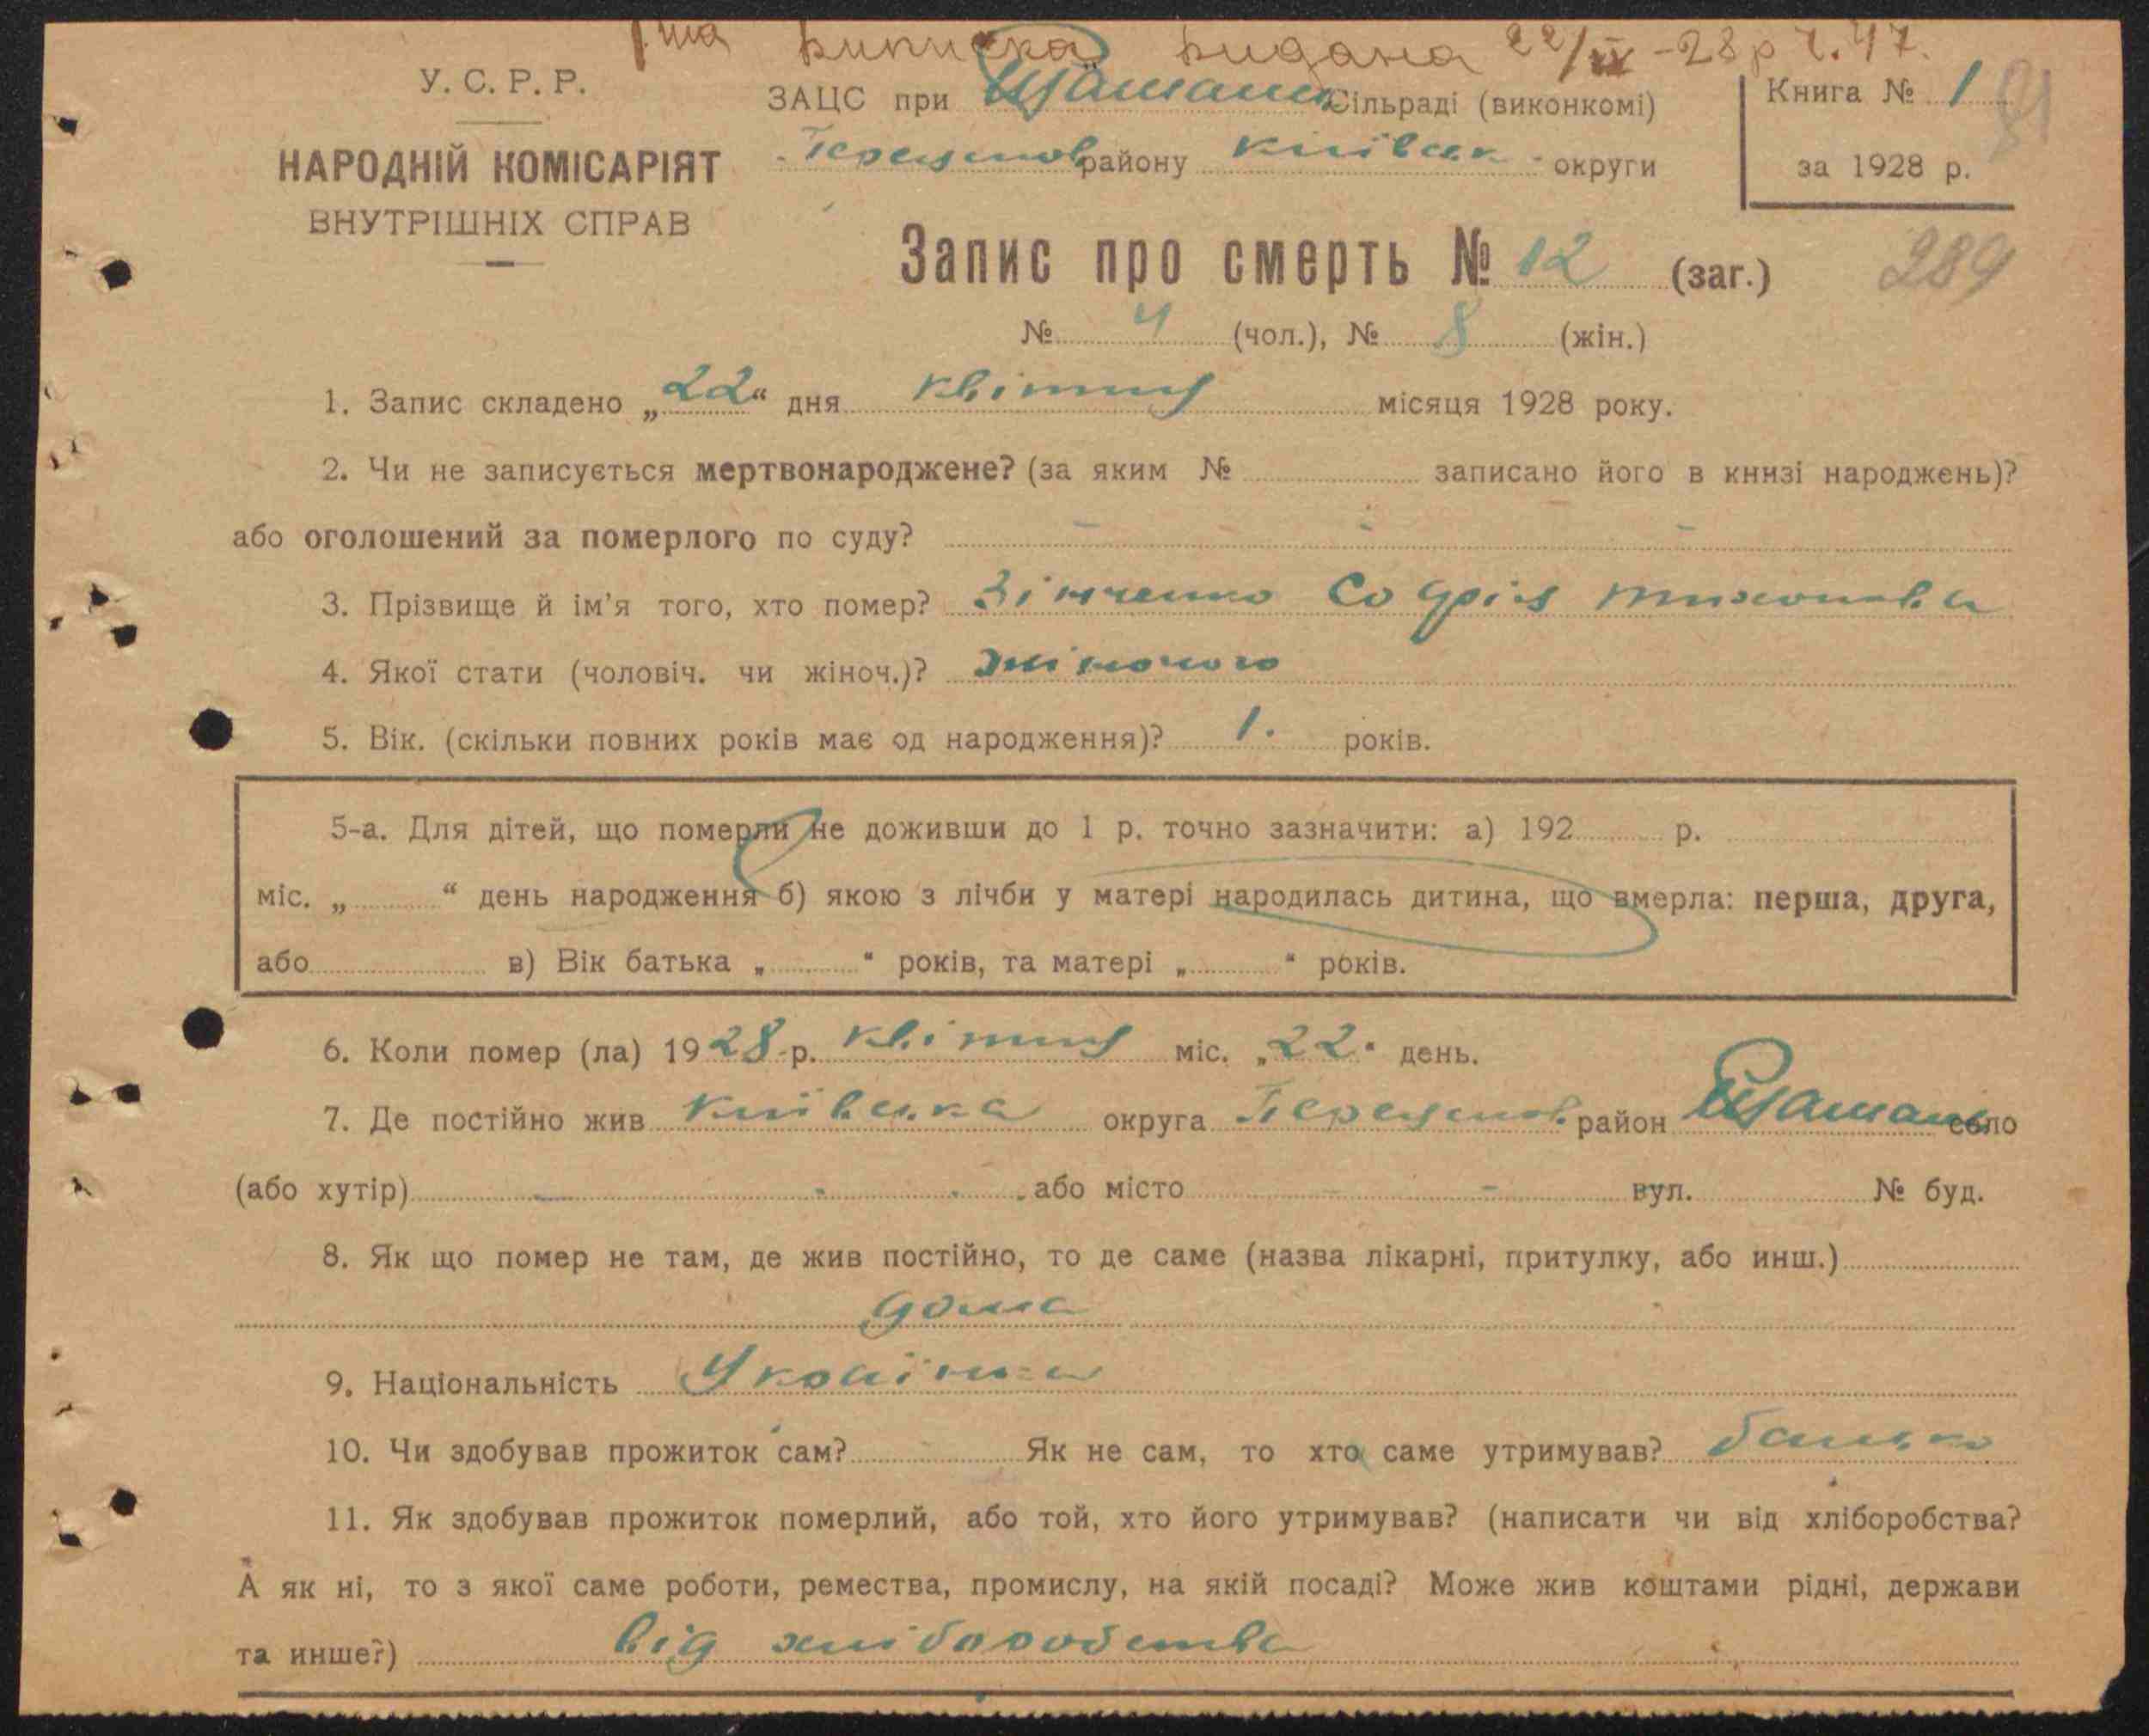 1ша виписка видана 22/IX -28 р ч. 47.
У. С. Р. Р.
НАРОДНІЙ КОМІСАРІЯТ
ВНУТРІШНІХ СПРАВ
ЗАЦС при Сільраді (виконкомі)
району Київськ. округи
Книга № 1
за 1928 р.
Запис про смерть № 12 (заг.)
289
№ 4 (чол.), № 8 (жін.)
1. Запис складено „22“ дня квітня місяця 1928 року.
2. Чи не записується мертвонароджене? (за яким № записано його в кннзі народжень)?
або оголошений за померлого по суду? – – –
3. Прізвище й ім'я того, хто помер? Зінченко Софія Тихоновна
4. Якої стати (чоловіч. чи жіноч.)? жіночого
5. Вік. (скільки повних років має од народження)? 1. років.
5-а. Для дітей, що померли не доживши до 1 р. точно зазначити: а) 192 р.
міс. „ “ день народження б) якою з лічби у матері народилась дитина, що вмерла: перша, друга,
або в) Вік батька „ “ років, та матері „ “ років.
6. Коли помер (ла) 1928 р. квітня міс. „22“ день.
7. Де постійно жив Київська округа район село
(або хутір) – або місто – вул. № буд.
8. Як що помер не там, де жив постійно, то де саме (назва лікарні, притулку, або инш.)
дома
9. Національність Українка
10. Чи здобував прожиток сам? Як не сам, то хто саме утримував? батько
11. Як здобував прожиток померлий, або той, хто його утримував? (написати чи від хліборобства?
А як ні, то з якої саме роботи, ремества, промислу, на якій посаді? Може жив коштами рідні, держави
та инше?) від хліборобства